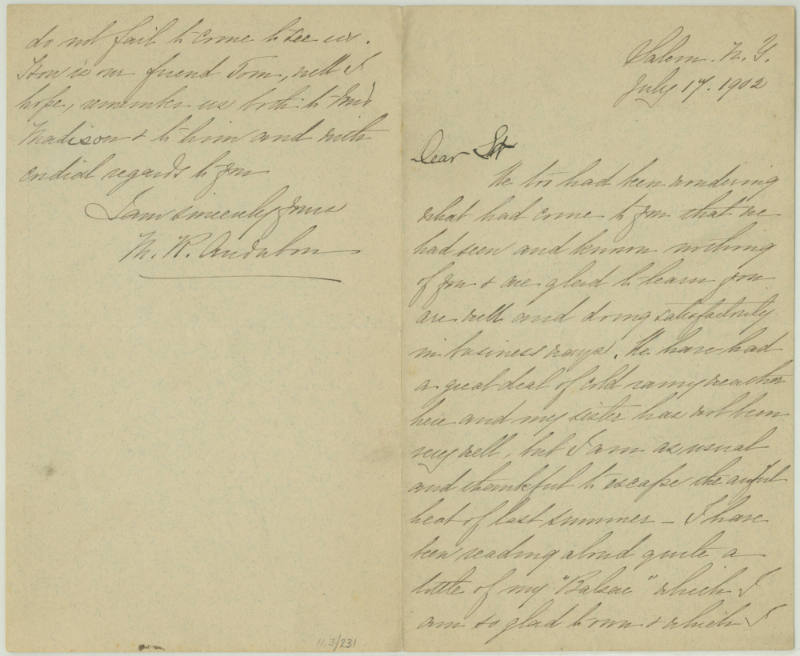 Salem. N. Y.
July 17. 1902
Dear Sir
We too had been wondering
what had come to you that we
had seen and known nothing
of you & are glad to learn you
are well and doing satisfactorily
in business ways. We have had
a great deal of cold rainy weather
here and my sister has not been
very well, but I am as usual
and thankful to escape the awful
heat of last summer – I have
been reading aloud quite a
little of my "Balzac" which I
am so glad to own & which I
do not fail to come to see us.
How is our friend Tom, well I
hope, remember us both to Mrs
Madison & to him and with
cordial regards to you
I am sincerely yours
M. R. Audubon
11.3/231